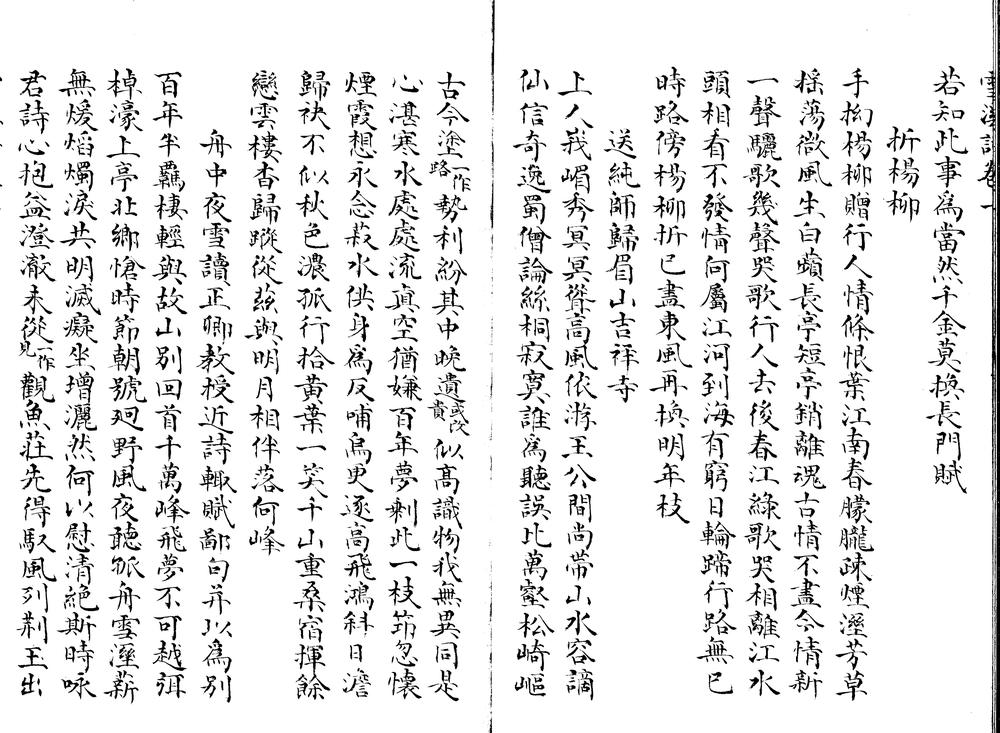 雪溪詩卷一
若知此事為當然千金莫換長門賦
折楊柳
手拗楊柳贈行人情倏恨葉江南春朦朧疎煙溼芳草
搖蕩微風生白蘋長亭短亭銷離魂古情不盡今情新
一聲驪歌幾聲哭歌行人去後春江綠歌哭相離江水
頭相看不發情何屬江河到海有窮日輪蹄行路無已
時路傍楊柳折已盡東風再換明年枝
送純師歸眉山吉祥寺
上人峩嵋秀冥冥聳高風依游王公間尚帶山水容謫
仙信奇逸蜀僧論絲桐寂寞誰為聽誤比萬壑松崎嶇
古今塗一作路勢利紛其中晚遺或改貴似高識物我無異同是
心湛寒水處處流真空猶嫌百年夢剩此一枝笻忽懷
煙霞想永念菽水供身為反哺烏更逐高飛鴻斜日澹
歸袂不似秋色濃孤行拾黃葉一笑千山重桑宿揮餘
戀雲棲杳歸蹤從茲與明月相伴落何峰
舟中夜雪讀正卿教授近詩輒賦鄙句并以為別
百年半羈棲輕與故山別回首千萬峰飛夢不可越弭
棹濠上亭北鄉愴時節朝號迥野風夜聽孤舟雪溼薪
無煖焰燭淚共明滅癡坐增灑然何以慰清絕斯時咏
君詩心抱益澄澈未從一作見觀魚莊先得馭風列荆玉出